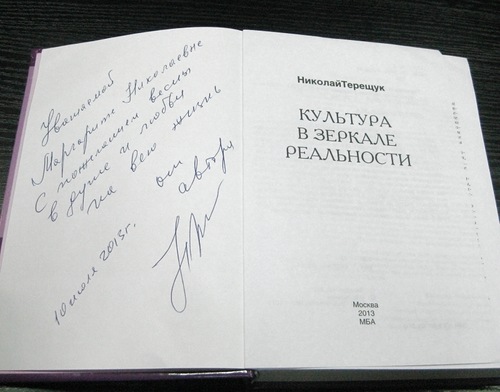 Уважаемой
Маргарите Николаевне
С пожеланием весны
в душе и любви
на всю жизнь
от автора
10 июля 2013г.
НиколайТерещук
КУЛЬТУРА
В ЗЕРКАЛЕ
РЕАЛЬНОСТИ
Москва
2013
МБА